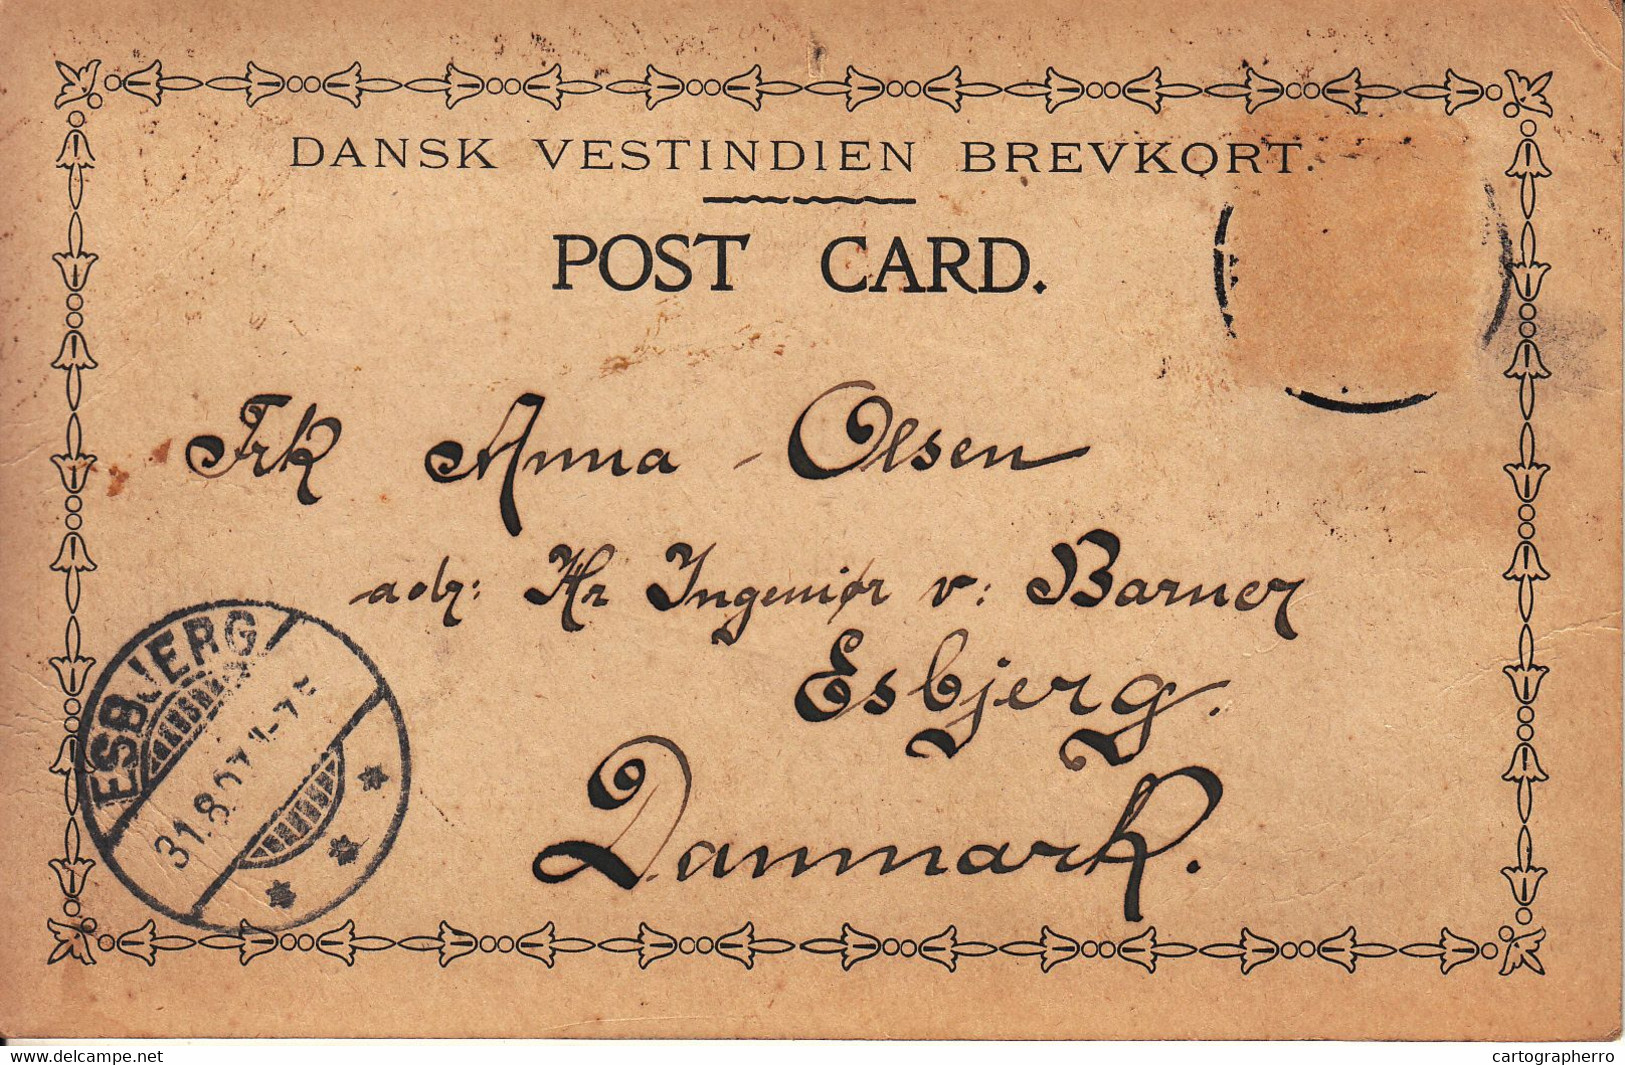 DANSK VESTINDIEN BREVKORT.
POST CARD.
Frk Anna Olsen
adr: Hr Ingeniør v: Barner
Esbjerg.
Danmark.
ESBJERG
31.8.07
www.delcampe.net
cartographerro